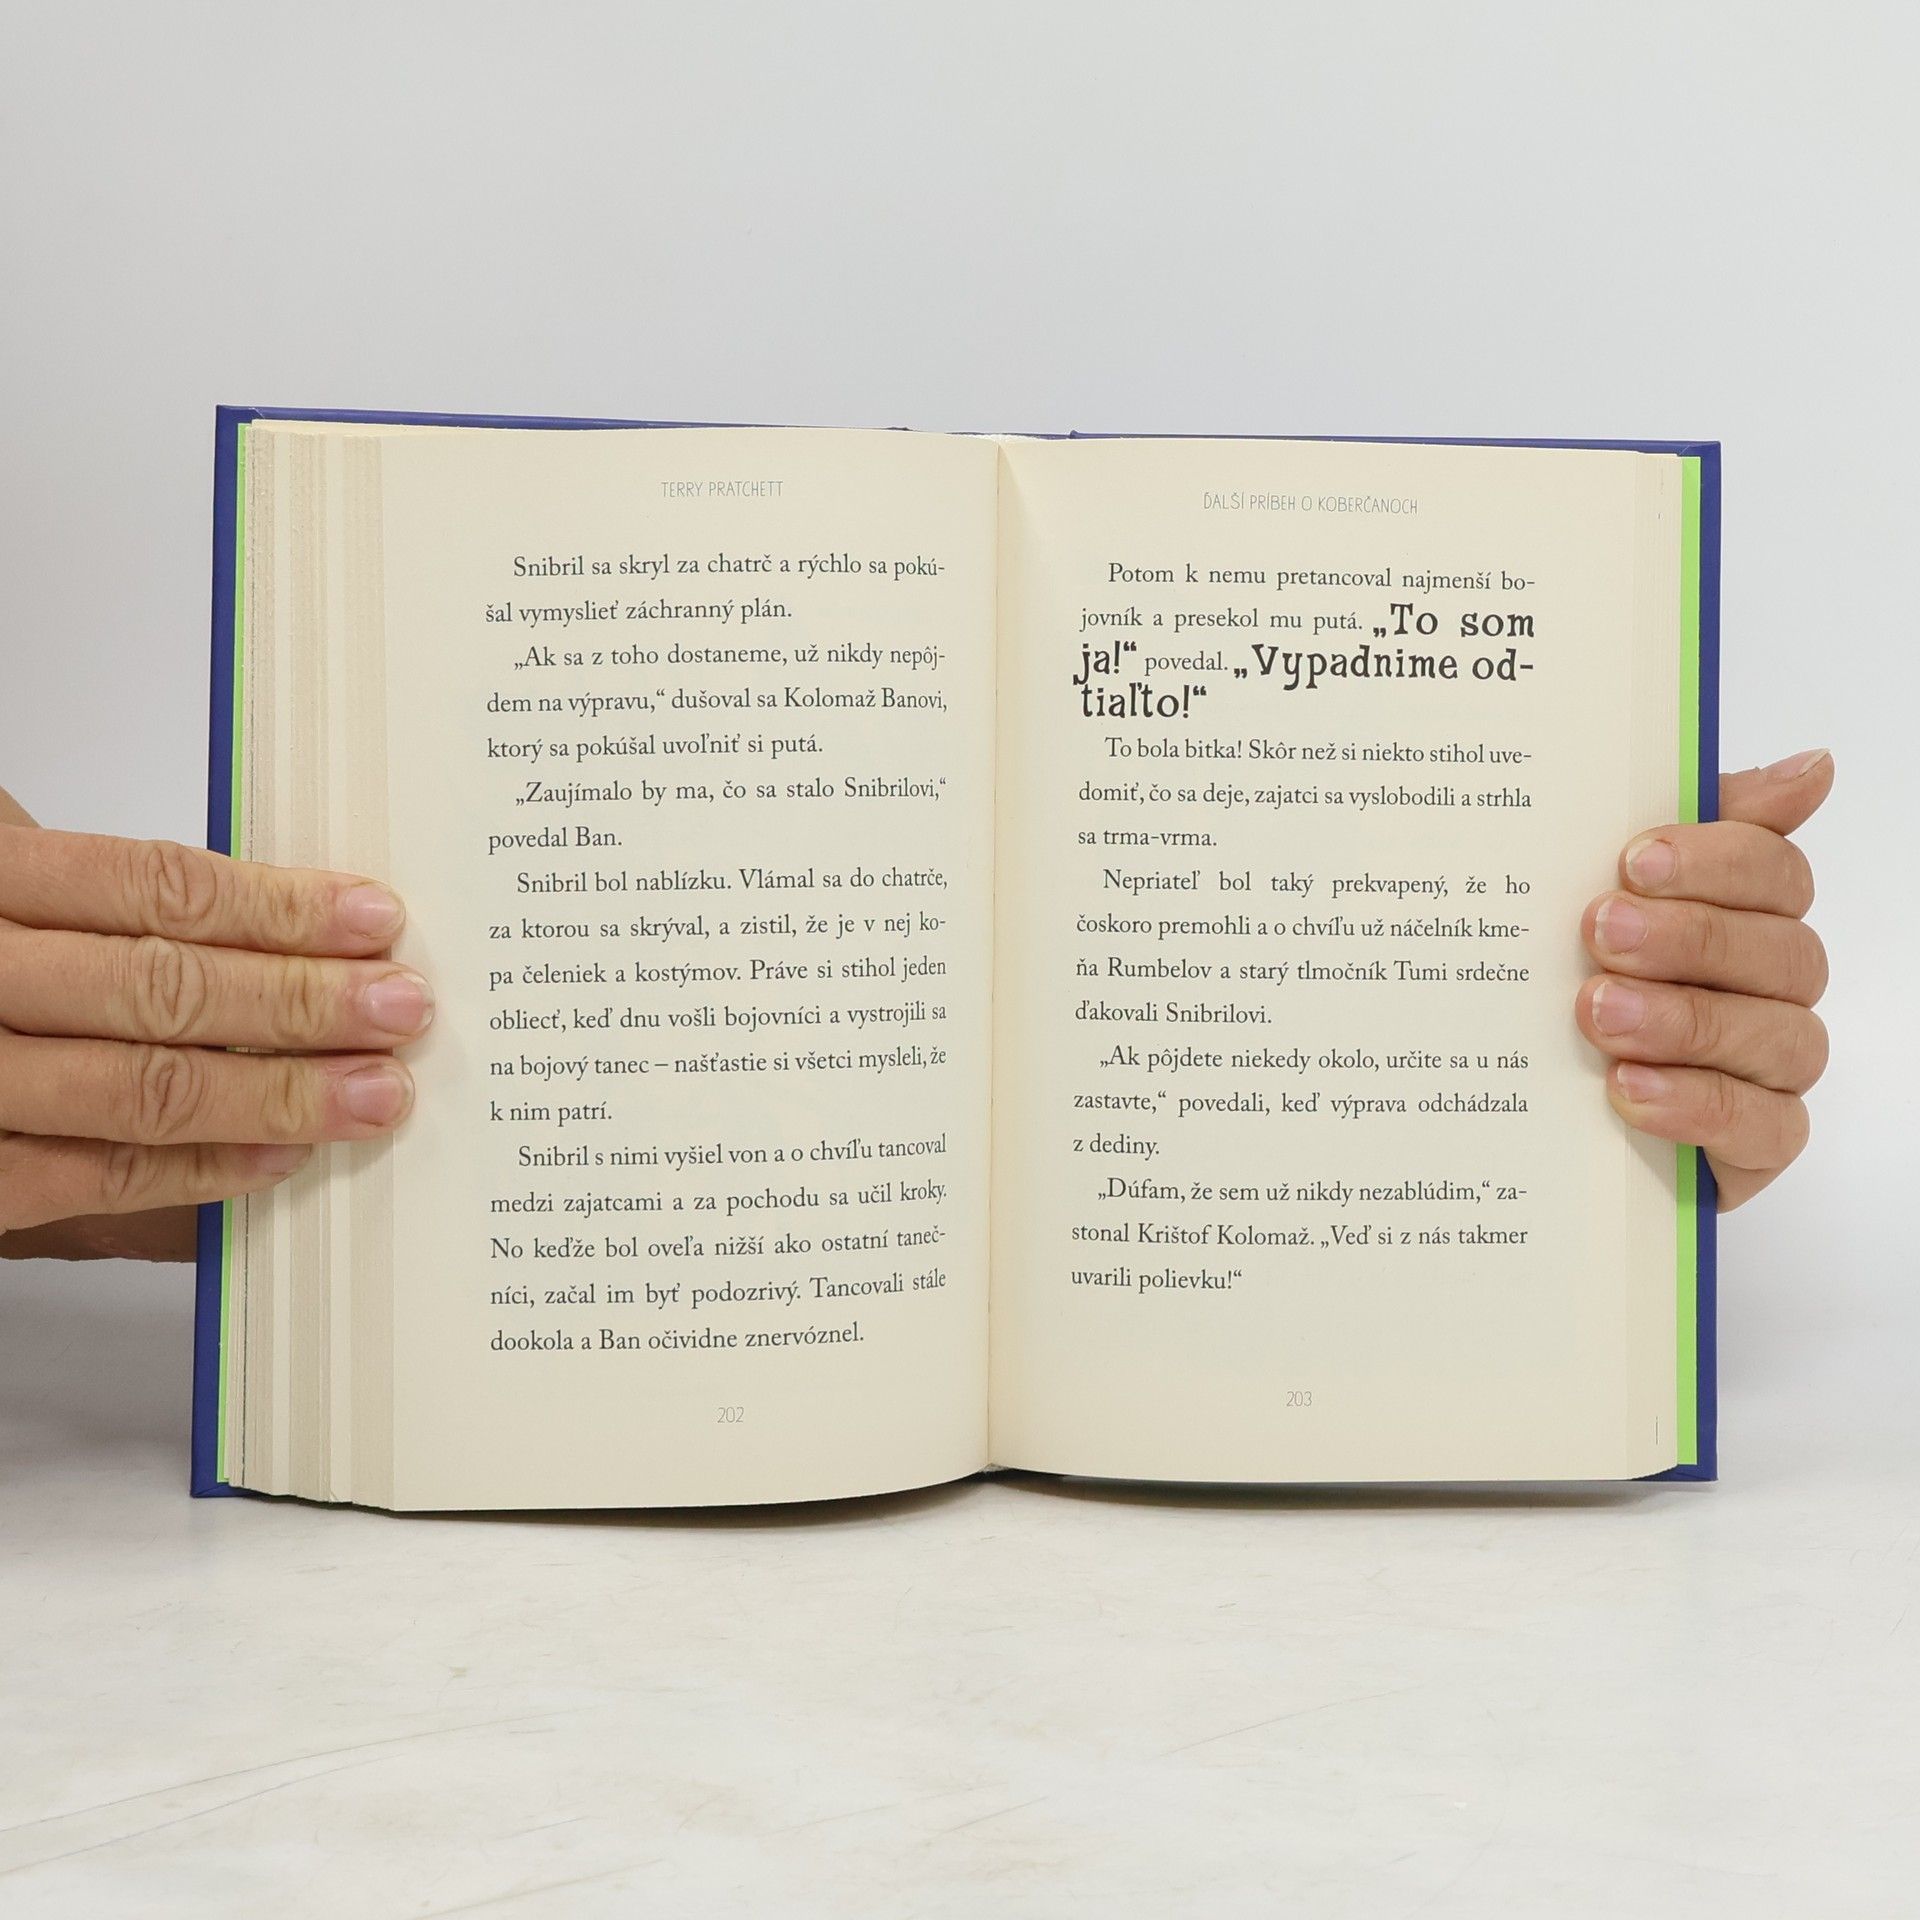 TERRY PRATCHETT
Snibril sa skryl za chatrč a rýchlo sa pokú-
šal vymyslieť záchranný plán.
„Ak sa z toho dostaneme, už nikdy nepôj-
dem na výpravu,“ dušoval sa Kolomaž Banovi,
ktorý sa pokúšal uvoľniť si putá.
„Zaujímalo by ma, čo sa stalo Snibrilovi,“
povedal Ban.
Snibril bol nablízku. Vlámal sa do chatrče,
za ktorou sa skrýval, a zistil, že je v nej ko-
pa čeleniek a kostýmov. Práve si stihol jeden
obliecť, keď dnu vošli bojovníci a vystrojili sa
na bojový tanec – našťastie si všetci mysleli, že
k nim patrí.
Snibril s nimi vyšiel von a o chvíľu tancoval
medzi zajatcami a za pochodu sa učil kroky.
No keďže bol oveľa nižší ako ostatní taneč-
níci, začal im byť podozrivý. Tancovali stále
dookola a Ban očividne znervóznel.
202
ĎALŠÍ PRÍBEH O KOBERČANOCH
Potom k nemu pretancoval najmenší bo-
jovník a presekol mu putá. „To som
ja!“ povedal. „Vypadnime od-
tiaľto!“
To bola bitka! Skôr než si niekto stihol uve-
domiť, čo sa deje, zajatci sa vyslobodili a strhla
sa trma-vrma.
Nepriateľ bol taký prekvapený, že ho
čoskoro premohli a o chvíľu už náčelník kme-
ňa Rumbelov a starý tlmočník Tumi srdečne
ďakovali Snibrilovi.
„Ak pôjdete niekedy okolo, určite sa u nás
zastavte,“ povedali, keď výprava odchádzala
z dediny.
„Dúfam, že sem už nikdy nezablúdim,“ za-
stonal Krištof Kolomaž. „Veď si z nás takmer
uvarili polievku!“
203